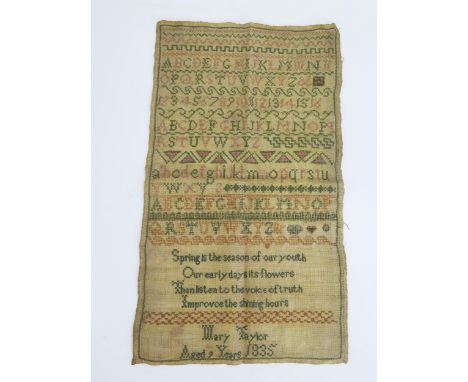 ABCDEFGHIJKLMN
OPQRSTUVWXYZ
1 2 3 4 5 6 7 8 9 10 11 12 13 14 15 16
ABCDEFGHIJKLMNOP
RSTUVWXYZ
abcdefghiklmnopqrstu
VWXYZ
ABCDEFGHIJKLMNOP
QRSTUVWXYZ
Spring is the season of our youth
Our early days its flowers
Then listen to the voice of truth
Improvce the shining hours
Mary Taylor
Aged 9 Years 1835